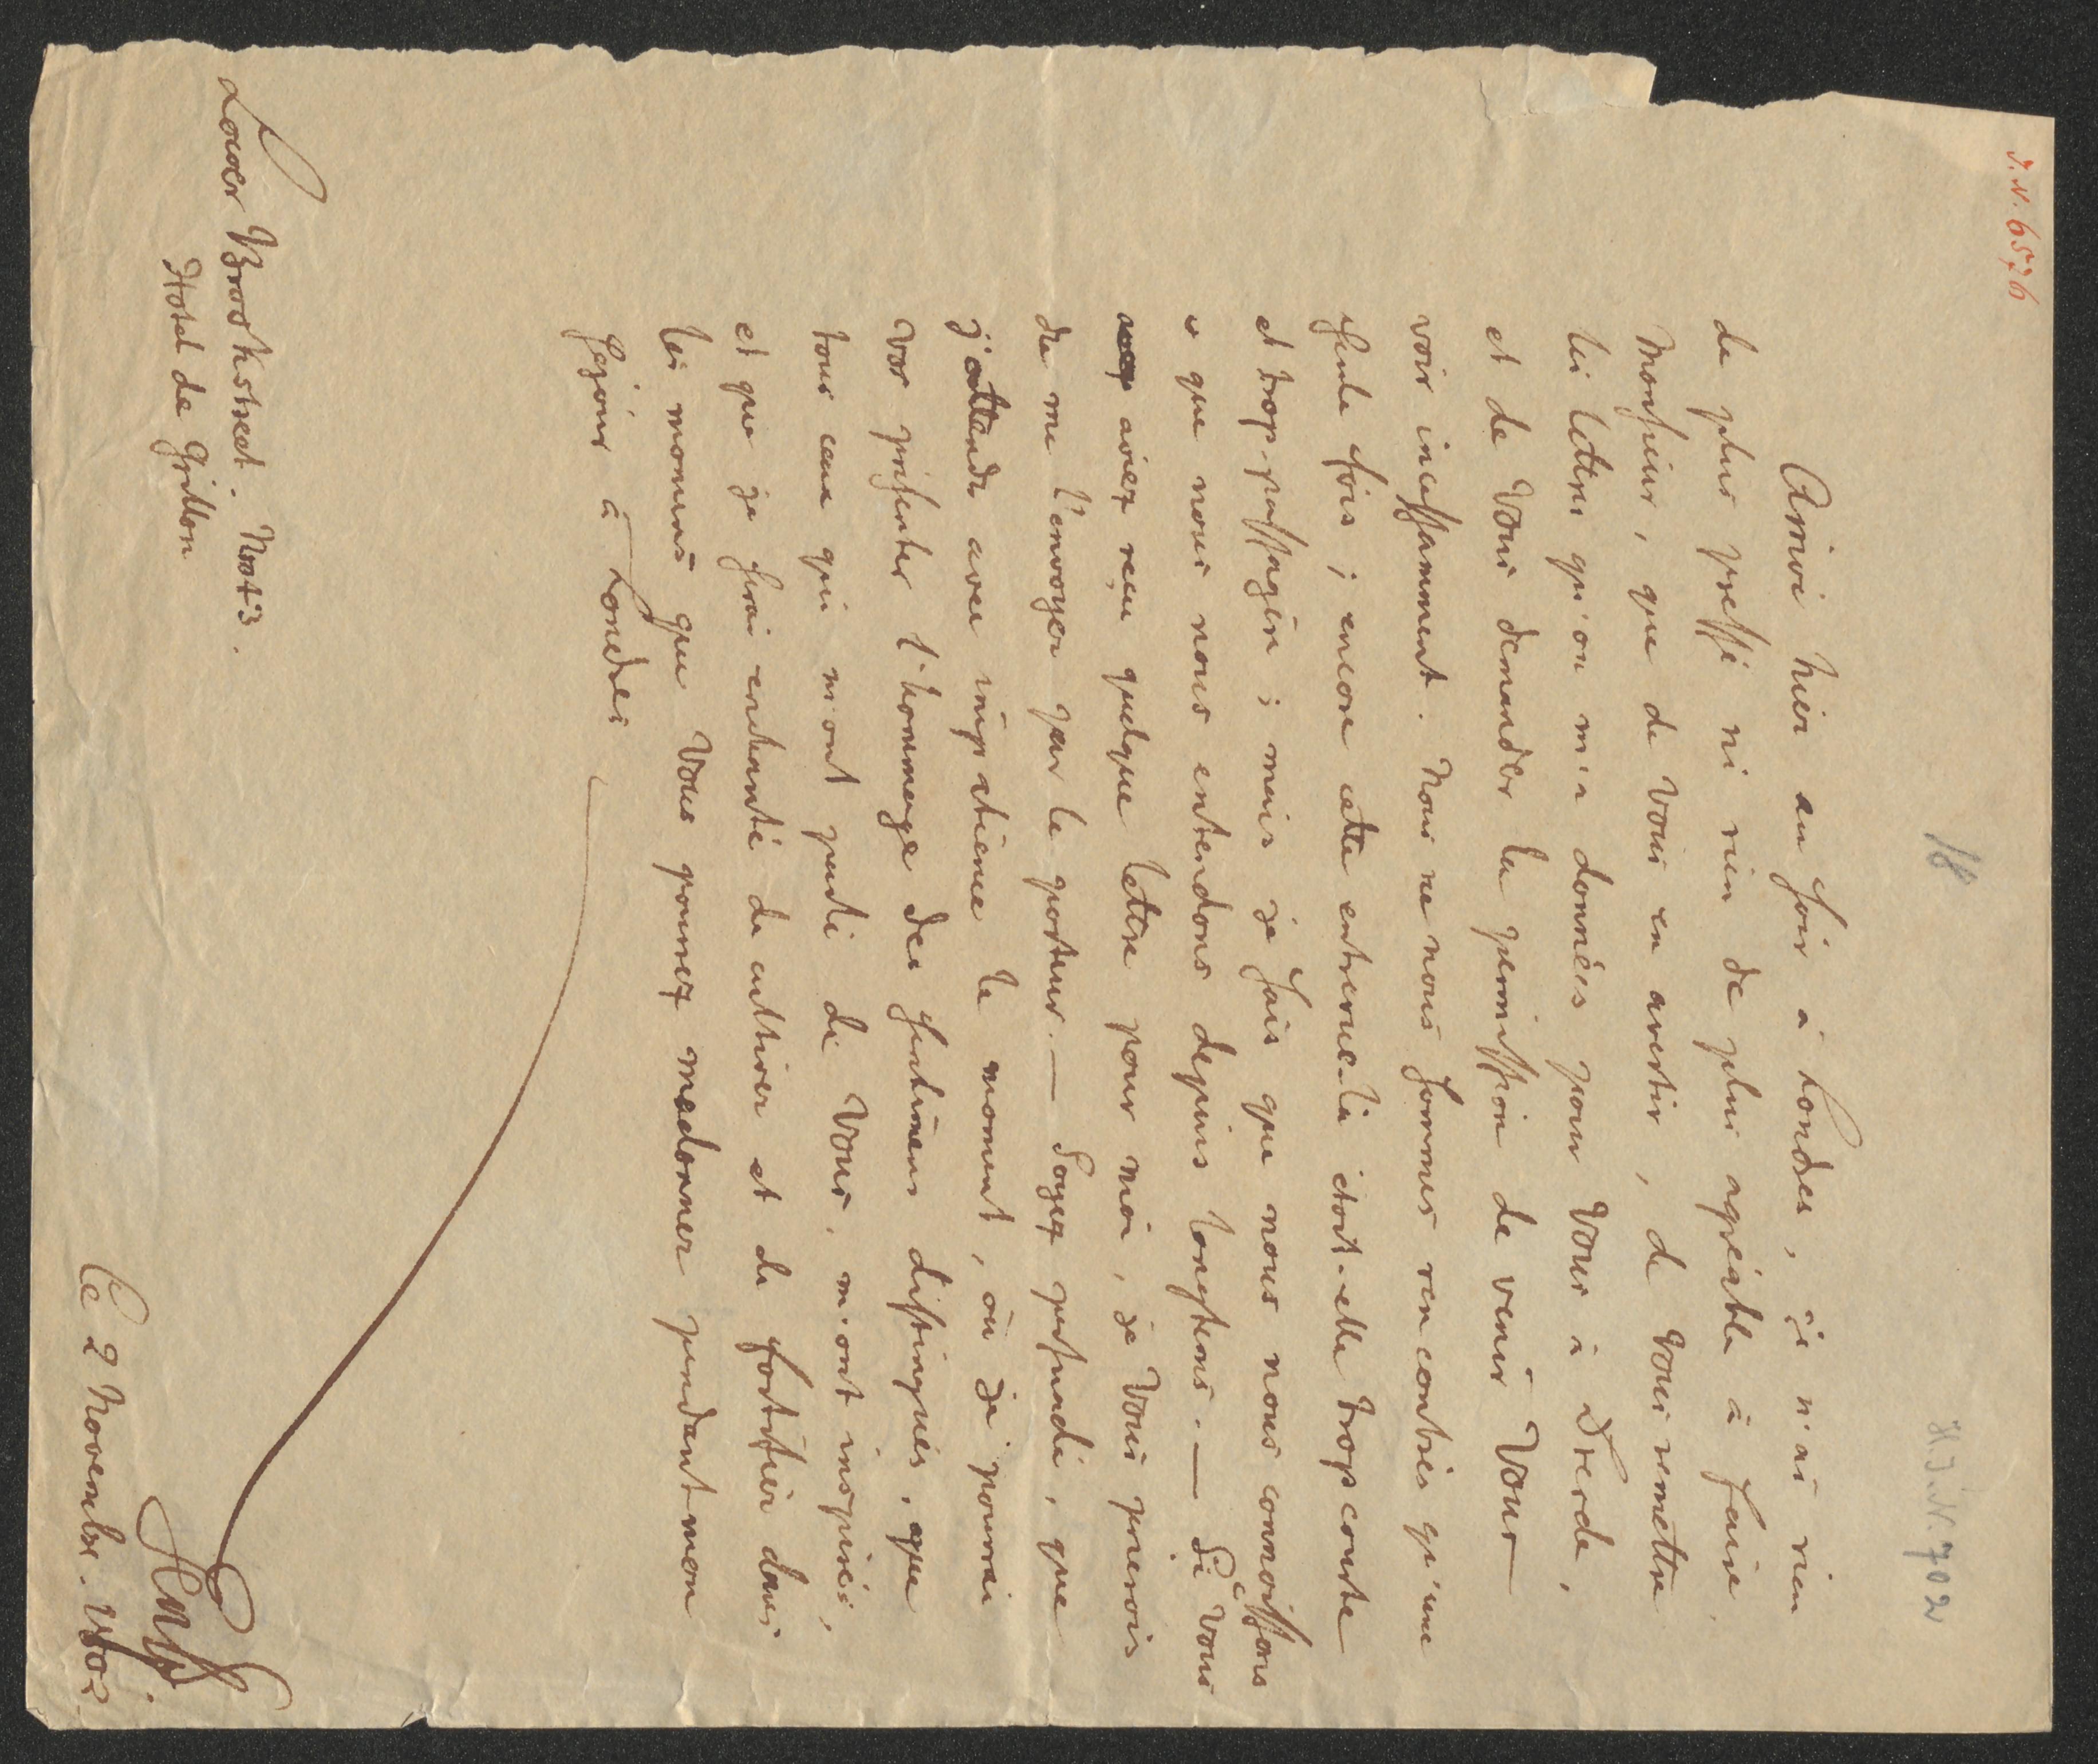 I.N. 6526
18
H.I.N. 702
Arrivé hier au soir à Londres, je n'ai rien
de plus pressé ni rien de plus agréable à faire,
Monsieur, que de Vous en avertir, de Vous remettre
les lettres qu'on m'a données pour Vous à Dresde,
et de Vous demander la permission de venir Vous
voir incessamment. Nous ne nous sommes rencontrés qu'une
seule fois; encore cette entrevue-là étoit-elle trop courte
et trop passagère; mais je sais que nous nous connoissons
et que nous nous entendons depuis longtems. — Si Vous
aviez reçu quelque lettre pour moi, je Vous prierois
de me l'envoyer par le porteur. — Soyez persuadé, que
j'attends avec impatience le moment, où je pourrai
Vos présenter l'hommage des sentimens distingués, que
tous ceux qui m'ont parlé de Vous, m'ont inspirés,
et que je serai enchanté de cultiver et de fortifier dans
les momens que Vous pourrez me donner pendant mon
séjour à Londres
Lower Brookstreet. Nro 43.
Hotel de Grillon
Ce 2 Novembre.